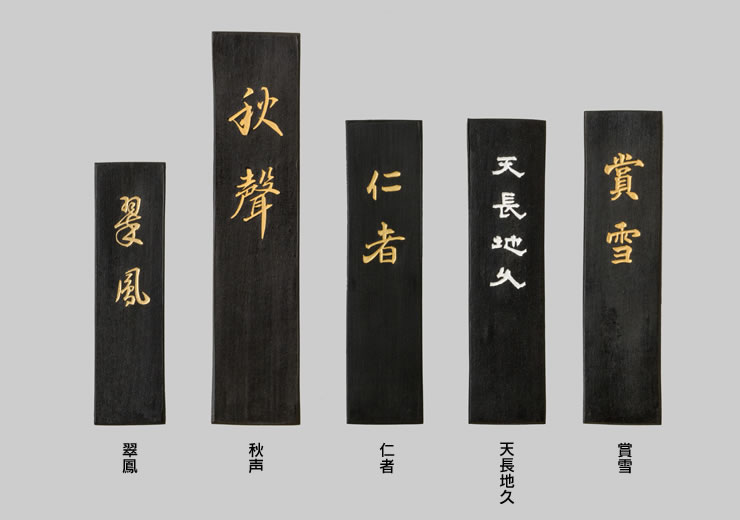 翠鳳
秋聲
仁者
天長地久
賞雪
翠鳳
秋声
仁者
天長地久
賞雪